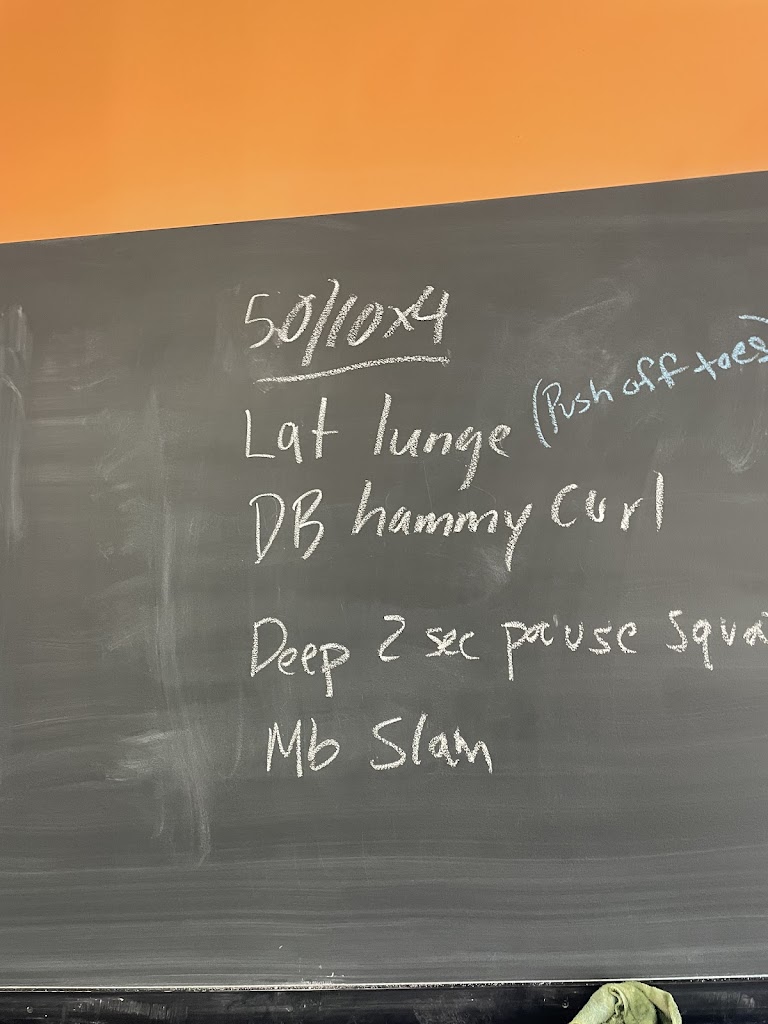 50/10x4
Lat lunge (Push off toes)
DB hammy curl
Deep 2 sec pause Squa
Mb Slam